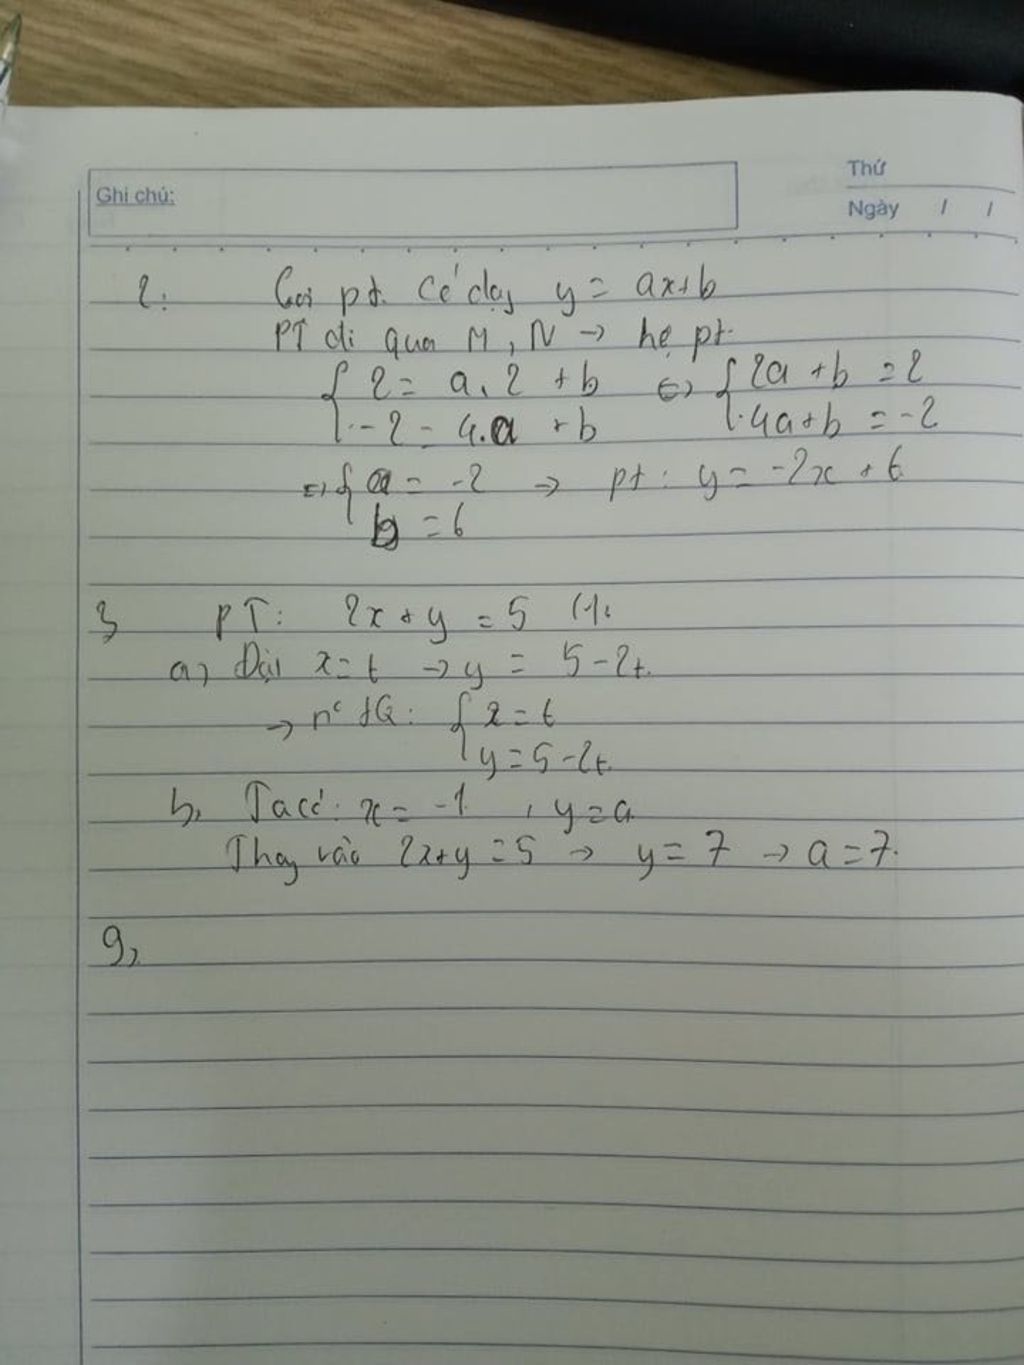 Ghi chú:
Thứ
Ngày / /
2: Gọi pt. có dạng y = ax+b
PT đi qua M, N → hệ pt.
{ 2 = a.2 + b ⇔ { 2a + b = 2
-2 = 4.a + b 4a+b = -2
⇔ { a = -2 → pt: y = -2x + 6
b = 6
3 PT: 2x + y = 5 (1).
a, Đặt x = t → y = 5-2t.
→ nº TQ: { x = t
y = 5-2t.
b, Ta có: x = -1 , y = a
Thay vào 2x+y = 5 → y = 7 → a = 7.
9,